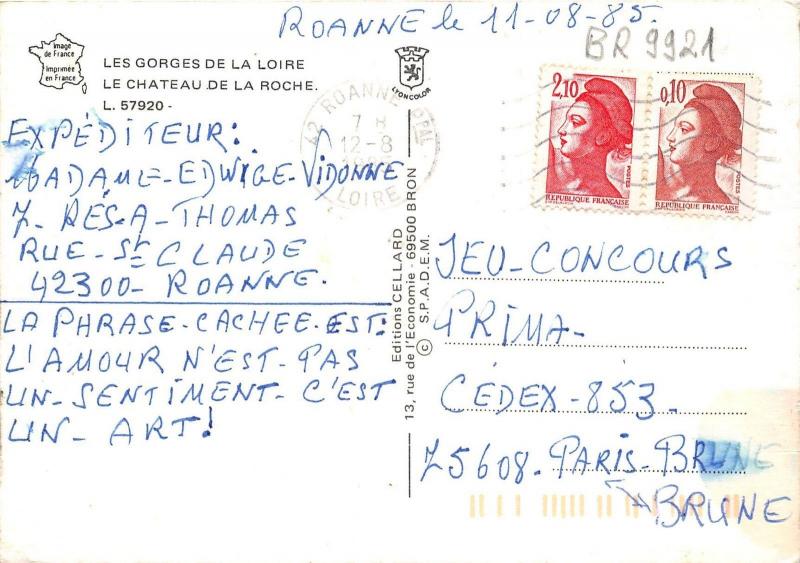 ROANNE le 11-08-85.
BR 9921
Image
de France
Imprimée
en France
LES GORGES DE LA LOIRE
LE CHATEAU DE LA ROCHE.
L. 57920 -
LYONCOLOR
42 ROANNE PAL
7 H
12-8
LOIRE
2,10
POSTES
REPUBLIQUE FRANÇAISE
0,10
POSTES
REPUBLIQUE FRANÇAISE
EXPÉDITEUR:
MADAME-EDWIGE-VIDONNE
7- RÉS-A-THOMAS
RUE-St CLAUDE
42300- ROANNE.
LA PHRASE-CACHEE-EST:
L'AMOUR N'EST-PAS
UN-SENTIMENT-C'EST
UN- ART!
Editions CELLARD
13, rue de l'Economie - 69500 BRON
© S.P.A.D.E.M.
JEU-CONCOURS
PRIMA-
CÉDEX-853.
75608-PARIS-BRUNE
BRUNE